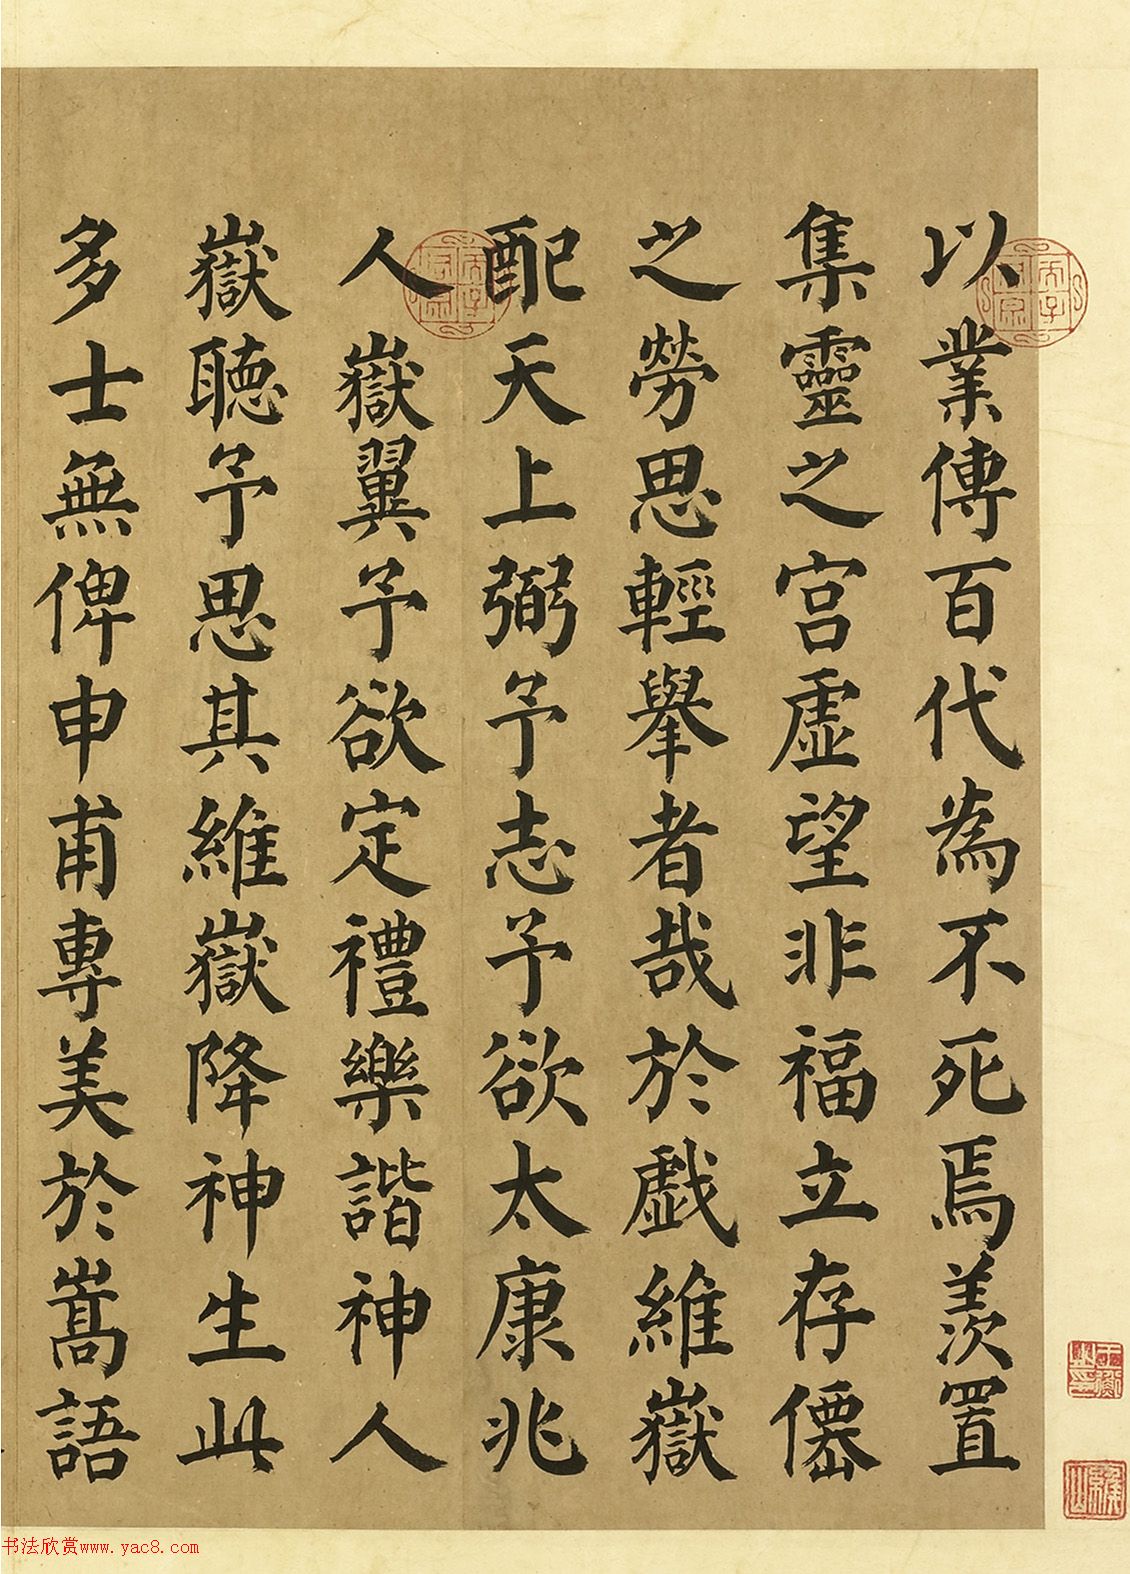 以業傳百代為不死焉羨置
集靈之宮虛望非福立存僊
之勞思輕舉者哉於戲維嶽
配天上弼予志予欲太康兆
人嶽翼予欲定禮樂諧神人
嶽聽予思其維嶽降神生此
多士無俾申甫專美於嵩語
书法欣赏www.yac8.com